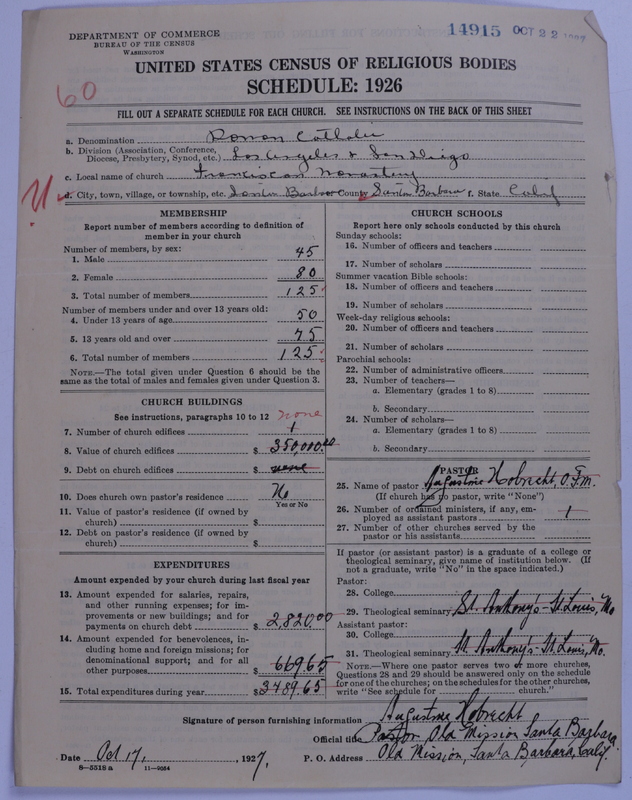 14915 OCT 22 1927
DEPARTMENT OF COMMERCE
BUREAU OF THE CENSUS
WASHINGTON
UNITED STATES CENSUS OF RELIGIOUS BODIES
SCHEDULE: 1926
60
FILL OUT A SEPARATE SCHEDULE FOR EACH CHURCH. SEE INSTRUCTIONS ON THE BACK OF THIS SHEET
a. Denomination Roman Catholic
b. Division (Association, Conference, Diocese, Presbytery, Synod, etc.) Los Angeles & San Diego
c. Local name of church Franciscan Monastery
d. City, town, village, or township, etc. Santa Barbara County Santa Barbara f. State Calif
MEMBERSHIP
Report number of members according to definition of
member in your church
Number of members, by sex:
1. Male 45
2. Female 80
3. Total number of members 125
Number of members under and over 13 years old:
4. Under 13 years of age 50
5. 13 years old and over 75
6. Total number of members 125
NOTE.—The total given under Question 6 should be the
same as the total of males and females given under Question 3.
CHURCH BUILDINGS
See instructions, paragraphs 10 to 12 none
7. Number of church edifices 1
8. Value of church edifices $ 350,000.00
9. Debt on church edifices $ none
10. Does church own pastor's residence No
Yes or No
11. Value of pastor's residence (if owned by
church) $
12. Debt on pastor's residence (if owned by
church) $
EXPENDITURES
Amount expended by your church during last fiscal year
13. Amount expended for salaries, repairs,
and other running expenses; for im-
provements or new buildings; and for
payments on church debt $ 2,820.00
14. Amount expended for benevolences, in-
cluding home and foreign missions; for
denominational support; and for all
other purposes 669.65
15. Total expenditures during year $ 3489.65
CHURCH SCHOOLS
Report here only schools conducted by this church
Sunday schools:
16. Number of officers and teachers
17. Number of scholars
Summer vacation Bible schools:
18. Number of officers and teachers
19. Number of scholars
Week-day religious schools:
20. Number of officers and teachers
21. Number of scholars
Parochial schools:
22. Number of administrative officers
23. Number of teachers—
a. Elementary (grades 1 to 8)
b. Secondary
24. Number of scholars—
a. Elementary (grades 1 to 8)
b. Secondary
PASTOR
25. Name of pastor Augustine Hobrecht, O.F.M.
(If church has no pastor, write "None")
26. Number of ordained ministers, if any, em-
ployed as assistant pastors 1
27. Number of other churches served by the
pastor or his assistants
If pastor (or assistant pastor) is a graduate of a college or
theological seminary, give name of institution below. (If
not a graduate, write "No" in the space indicated.)
Pastor:
28. College
29. Theological seminary St. Anthony's - St. Louis, Mo
Assistant pastor:
30. College
31. Theological seminary St. Anthony's - St. Louis, Mo.
NOTE.—Where one pastor serves two or more churches,
Questions 28 and 29 should be answered only on the schedule
for one of the churches; on the schedules for the other churches,
write "See schedule for church."
Signature of person furnishing information Augustine Hobrecht
Official title Pastor, Old Mission Santa Barbara
Date Oct 17, 1927. P. O. Address Old Mission, Santa Barbara, Calif.
8—5518 a 11—9034